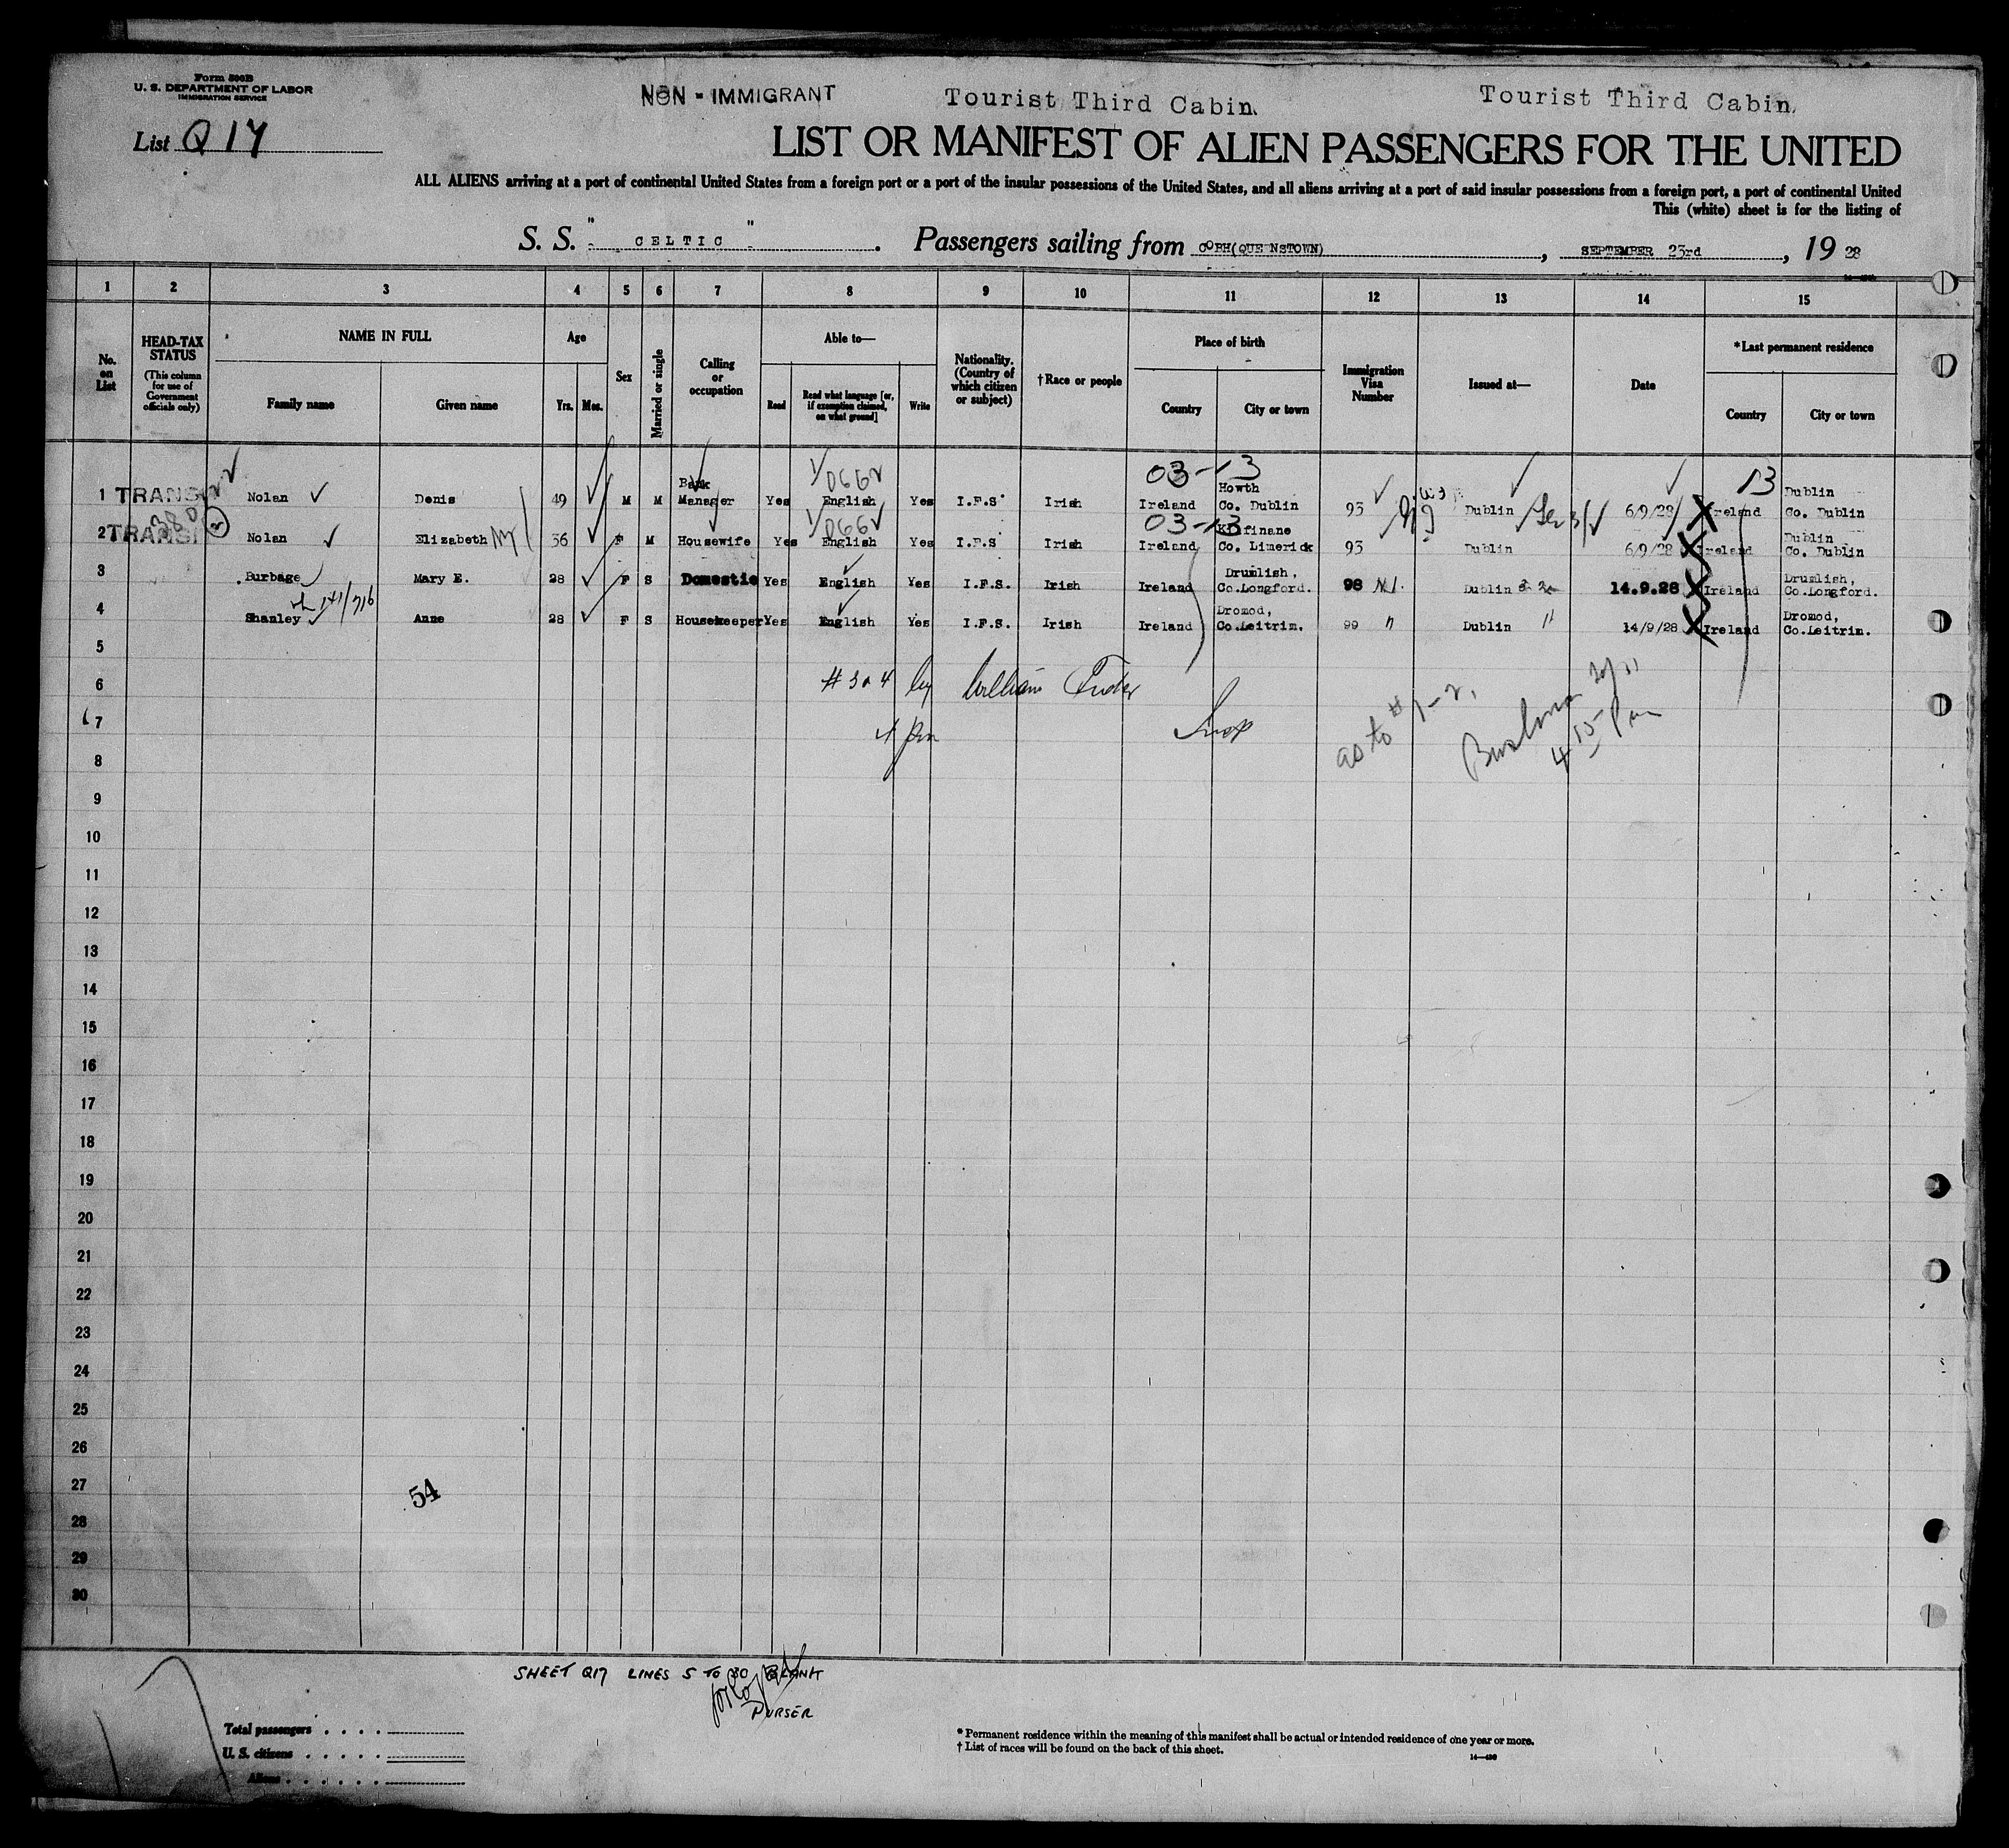 Form 500B
U. S. DEPARTMENT OF LABOR
IMMIGRATION SERVICE
NON - IMMIGRANT
Tourist Third Cabin.
Tourist Third Cabin.
List Q 17
LIST OR MANIFEST OF ALIEN PASSENGERS FOR THE UNITED
ALL ALIENS arriving at a port of continental United States from a foreign port or a port of the insular possessions of the United States, and all aliens arriving at a port of said insular possessions from a foreign port, a port of continental United
This (white) sheet is for the listing of
S. S. " CELTIC " . Passengers sailing from COBH(QUEENSTOWN) , SEPTEMBER 23rd , 19 28
1 2 3 4 5 6 7 8 9 10 11 12 13 14 15
No. on List
HEAD-TAX STATUS
(This column for use of Government officials only)
NAME IN FULL
Family name
Given name
Age
Yrs.
Mos.
Sex
Married or single
Calling or occupation
Able to—
Read
Read what language [or, if exemption claimed, on what ground]
Write
Nationality. (Country of which citizen or subject)
†Race or people
Place of birth
Country
City or town
Immigration Visa Number
Issued at—
Date
*Last permanent residence
Country
City or town
03-13
13
1 TRANSIT Nolan Denis 49 M M Bank Manager Yes English Yes I.F.S. Irish Ireland Howth Co. Dublin 93 Dublin 6/9/28 Ireland Dublin Co. Dublin
03-13
2 TRANSIT Nolan Elizabeth 36 F M Housewife Yes English Yes I.F.S Irish Ireland Kilfinane Co. Limerick 93 Dublin 6/9/28 Ireland Dublin Co. Dublin
3 Burbage Mary E. 28 F S Domestic Yes English Yes I.F.S. Irish Ireland Drumlish, Co.Longford. 98 Dublin 14.9.28 Ireland Drumlish, Co.Longford.
4 Shanley Anne 28 F S Housekeeper Yes English Yes I.F.S. Irish Ireland Dromod, Co.Leitrim. 99 " Dublin " 14/9/28 Ireland Dromod, Co.Leitrim.
5
6 # 3 & 4 by William
7 Insp
as to # 1-2.
4 15 Pm
8
9
10
11
12
13
14
15
16
17
18
19
20
21
22
23
24
25
26
27
54
28
29
30
SHEET Q17 LINES 5 TO 30 BLANK
PURSER
Total passengers . . . .
U. S. citizens . . . . .
Aliens . . . . . .
* Permanent residence within the meaning of this manifest shall be actual or intended residence of one year or more.
† List of races will be found on the back of this sheet.
14—430